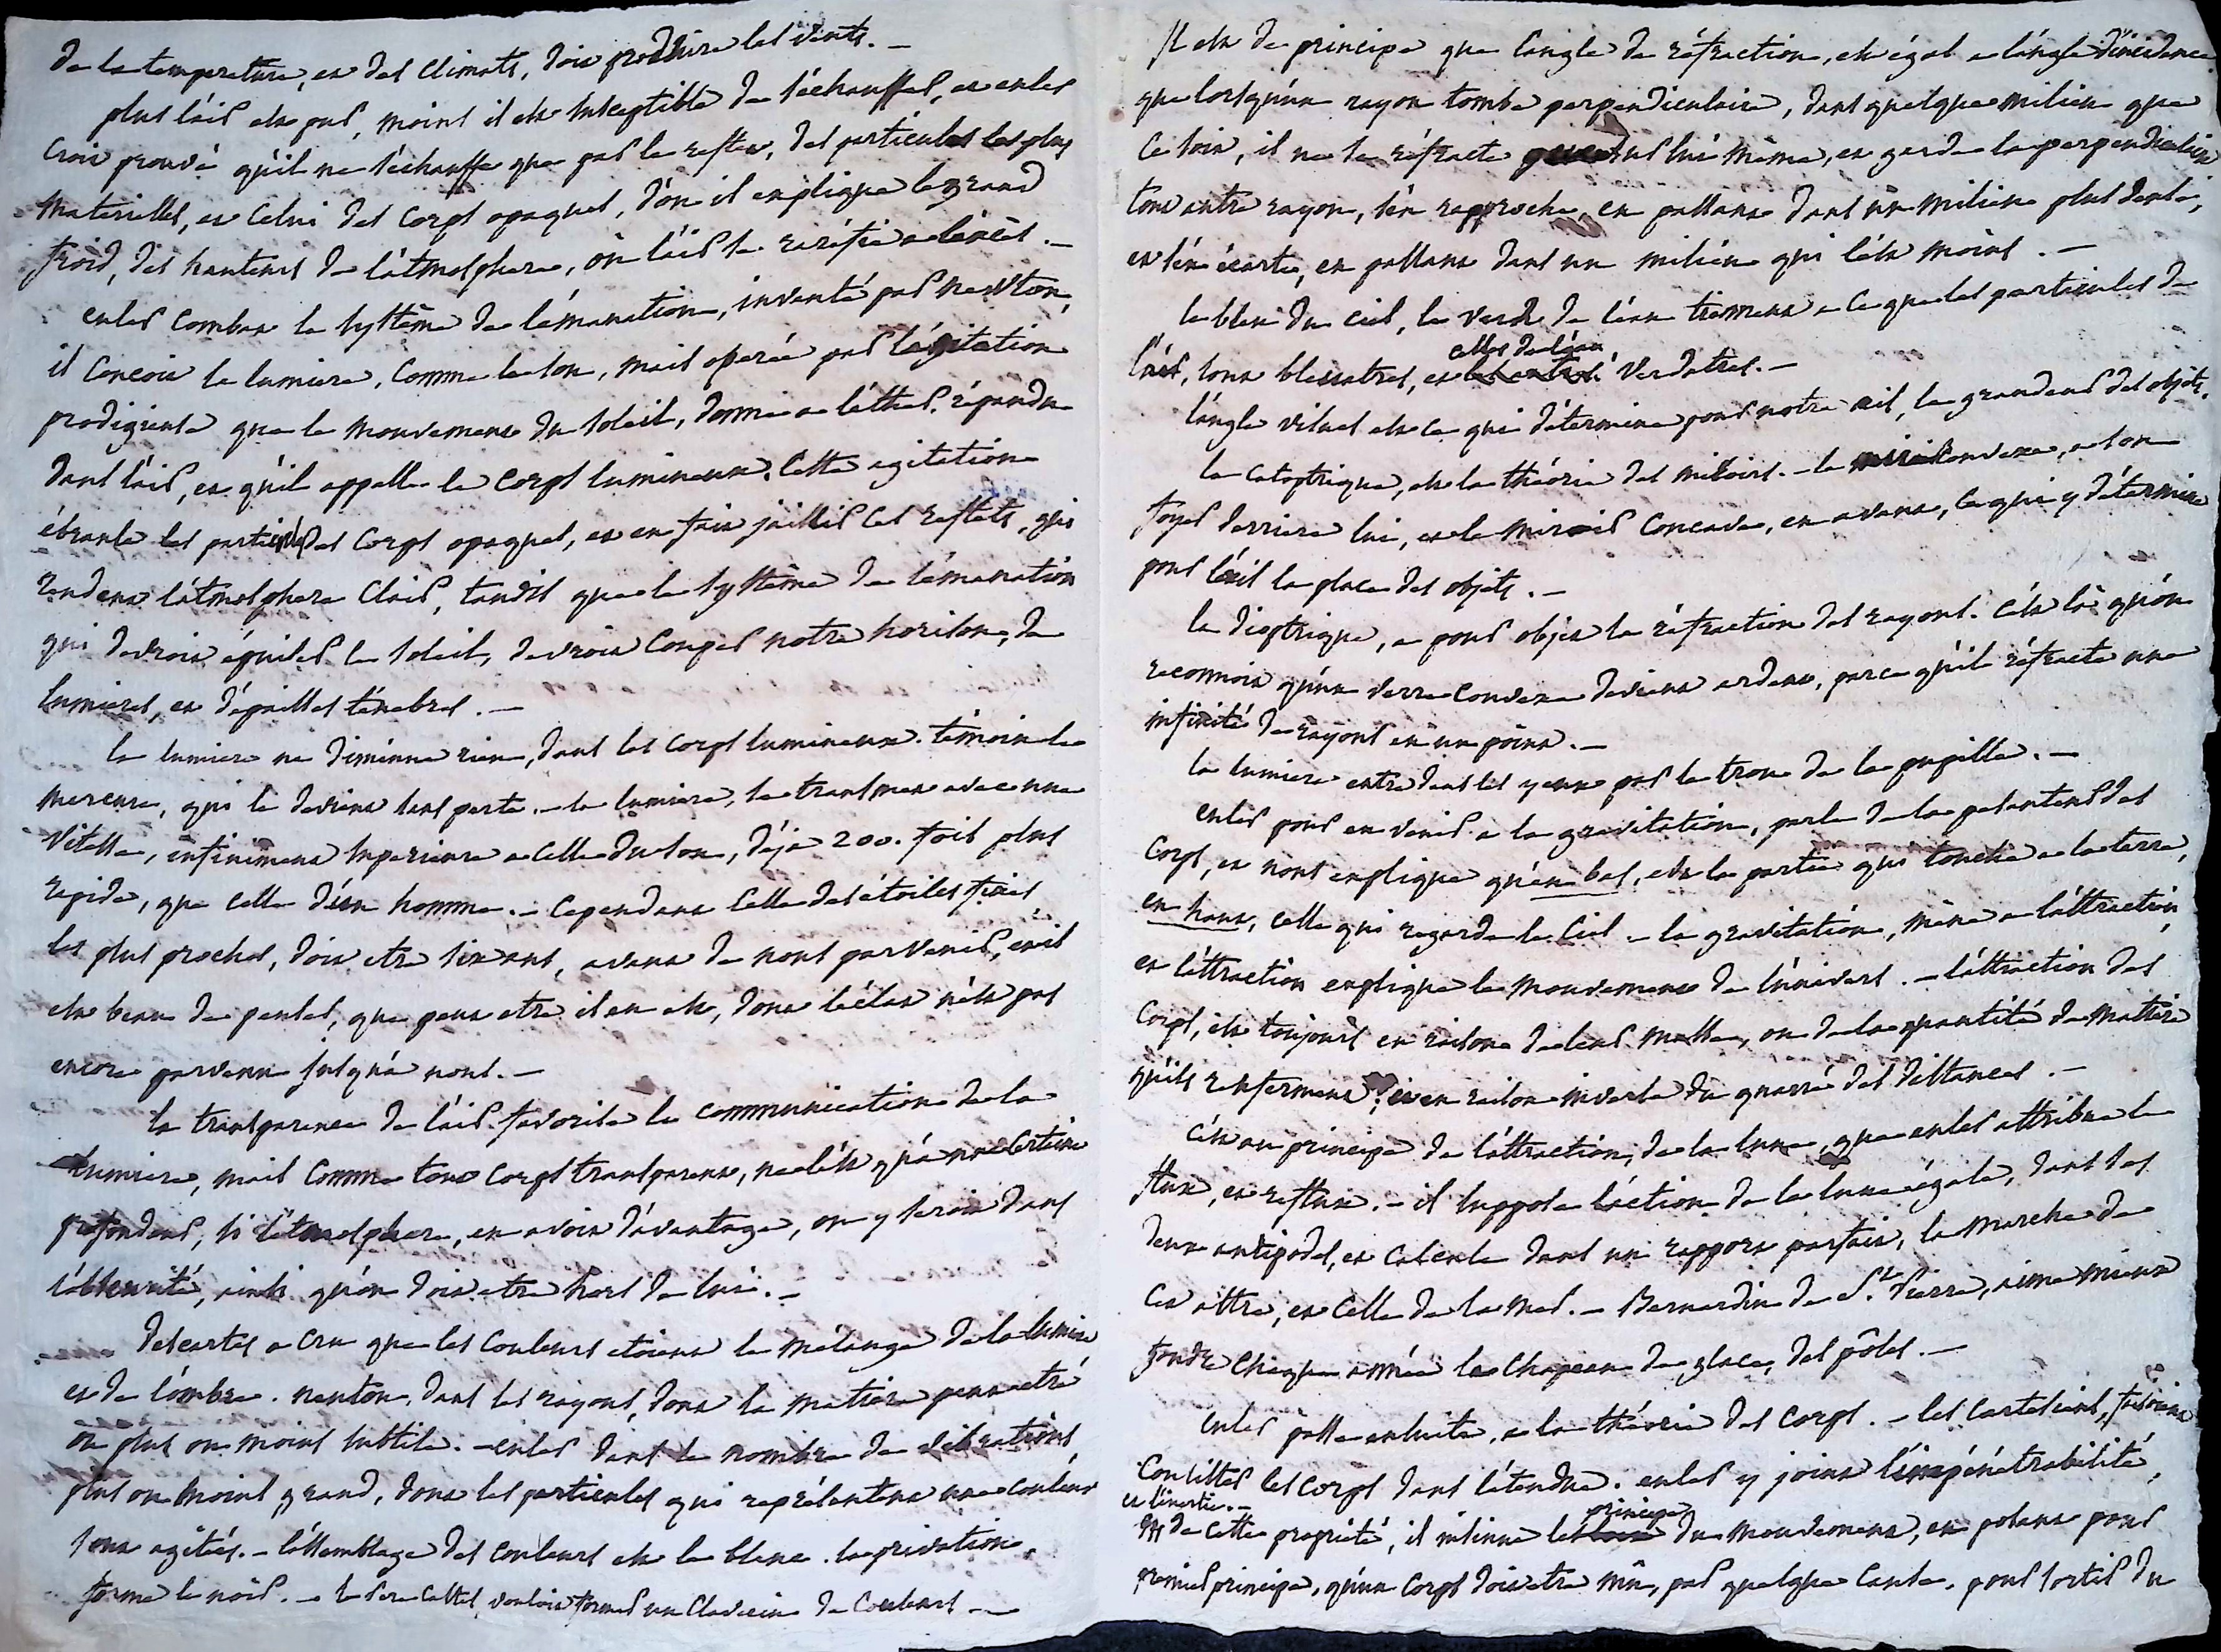 de la temperature, et des climats, doit produire les vents. —
plus l'air est pur, moins il est susceptible de s'échauffer, et euler
croit prouvé qu'il ne s'échauffe que par le reflet, des particules les plus
materielles, et celui des corps opaques, d'où il explique le grand
froid, des hauteurs de l'atmosphere, où l'air se raréfie a l'excès. —
euler combat le systême de l'émanation, inventé par newton,
il conçoit la lumiere, comme le son, mais operée par l'agitation
prodigieuse que le mouvement du soleil, donne a l'éther, répandu
dans l'air, et qu'il appelle le corps lumineux. Cette agitation
ébranle les particules des corps opaques, et en fait jaillir ces reflets, qui
rendent l'atmosphere clair, tandis que le systême de l'émanation
qui devroit épuiser le soleil, devroit couper notre horison, de
lumieres, et d'épaisses ténebres. —
la lumiere ne diminue rien, dans les corps lumineux. témoin le
mercure, qui le devient sans perte. — la lumiere, se transmet avec une
vitesse, infiniment superieure a celle du son, déja 200. fois plus
rapide, que celle d'un homme. — cependant celle des étoiles fixes
les plus proches, doit etre six ans, avant de nous parvenir, et il
est beau de penser, que peut etre il en est, dont l'éclat n'est pas
encore parvenu jusqu'à nous. —
la transparence de l'air favorise la communication de la
lumiere, mais comme tout corps transparent, ne l'est qu'à une certaine
profondeur, si l'atmosphere, en avoit d'avantage, on y seroit dans
l'obscurité, ainsi qu'on doit etre hors de lui. —
descartes a cru que les couleurs etoient le mélange de la lumiere
et de l'ombre. newton, dans les rayons, dont la matiere peut etre
ou plus ou moins subtile. — euler dans le nombre de vibrations,
plus ou moins grand, dont les particules qui représentent une couleur
sont agitées. — l'assemblage des couleurs est le blanc. la privation,
forme le noir. — le pere castel, vouloit former un clavecin de couleurs —
Il est de principe que l'angle de réfraction, est égal a l'angle d'incidence
que lorsqu'un rayon tombe perpendiculaire, dans quelque milieu que
ce soit, il ne se réfracte que sur lui même, et garde la perpendiculaire
tout autre rayon, s'en rapproche, en passant dans un milieu plus dense,
et s'en écarte, en passant dans un milieu qui l'est moins. —
le bleu du ciel, le verd de l'eau tiennent a ce que les particules de
l'air, sont bleuatres, et celles de l'eau verdatres. —
l'angle visuel est ce qui détermine pour notre œil, la grandeur des objets.
la catoptrique, est la théorie des miroirs. — le miroir convexe, a son
foyer derriere lui, et le miroir concave, en avant, ce qui y détermine
pour l'œil la place des objets. —
la dioptrique, a pour objet la réfraction des rayons. c'est là qu'on
reconnoit qu'un verre convexe devient ardent, parce qu'il réfracte une
infinité de rayons en un point. —
la lumiere entre dans les yeux par le trou de la pupille. —
euler pour en venir a la gravitation, parle de la pesanteur des
corps, et nous explique qu'en bas, est la partie qui touche a la terre,
en haut, celle qui regarde le ciel — la gravitation, mène a l'attraction,
et l'attraction explique le mouvement de l'univers. — l'attraction des
corps, est toujours en raison de leur masse, ou de la quantité de matiere
qu'ils renferment, et en raison inverse du quarré des distances. —
c'est au principe de l'attraction, de la lune, que euler attribue le
flux, et reflux. — il suppose l'action de la lune égale, dans les
deux antipodes, et calcule dans un rapport parfait, la marche de
cet astre, et celle de la mer. — Bernardin de St. Pierre, aime mieux
fondre chaque année le chapeau de glace, des pôles. —
Euler passe ensuite, a la théorie des corps. — les cartesiens, faisoient
consister les corps dans l'étendue. euler y joint l'impénétrabilité,
et l'inertie. —
de cette propriété, il intime les principes du mouvement, en posant pour
premier principe, qu'un corps doit etre mû, par quelque cause, pour sortir du